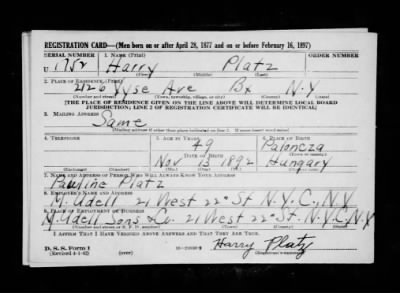 REGISTRATION CARD—(Men born on or after April 28, 1877 and on or before February 16, 1897)
SERIAL NUMBER 1. NAME (Print) ORDER NUMBER
U 1752 Harry Platz
(First) (Middle) (Last)
2. PLACE OF RESIDENCE (Print)
2126 Vyse Ave Bx N.Y
(Number and street) (Town, township, village, or city) (County) (State)
[THE PLACE OF RESIDENCE GIVEN ON THE LINE ABOVE WILL DETERMINE LOCAL BOARD
JURISDICTION; LINE 2 OF REGISTRATION CERTIFICATE WILL BE IDENTICAL]
3. MAILING ADDRESS
Same
[Mailing address if other than place indicated on line 2. If same insert word same]
4. TELEPHONE 5. AGE IN YEARS 6. PLACE OF BIRTH
49 Paloncza
DATE OF BIRTH
Nov 13 1892 Hungary
7. NAME AND ADDRESS OF PERSON WHO WILL ALWAYS KNOW YOUR ADDRESS
Pauline Platz
8. EMPLOYER'S NAME AND ADDRESS
M. Udell 21 West 22nd St N.Y.C., N.Y
9. PLACE OF EMPLOYMENT OR BUSINESS
M. Udell Sons & Co. 21 West 22nd St. N.Y.C. N.Y
(Number and street or R. F. D. number) (Town) (County) (State)
I AFFIRM THAT I HAVE VERIFIED ABOVE ANSWERS AND THAT THEY ARE TRUE.
D. S. S. Form 1
(Revised 4-1-42) (over) Harry Platz
(Registrant's signature)